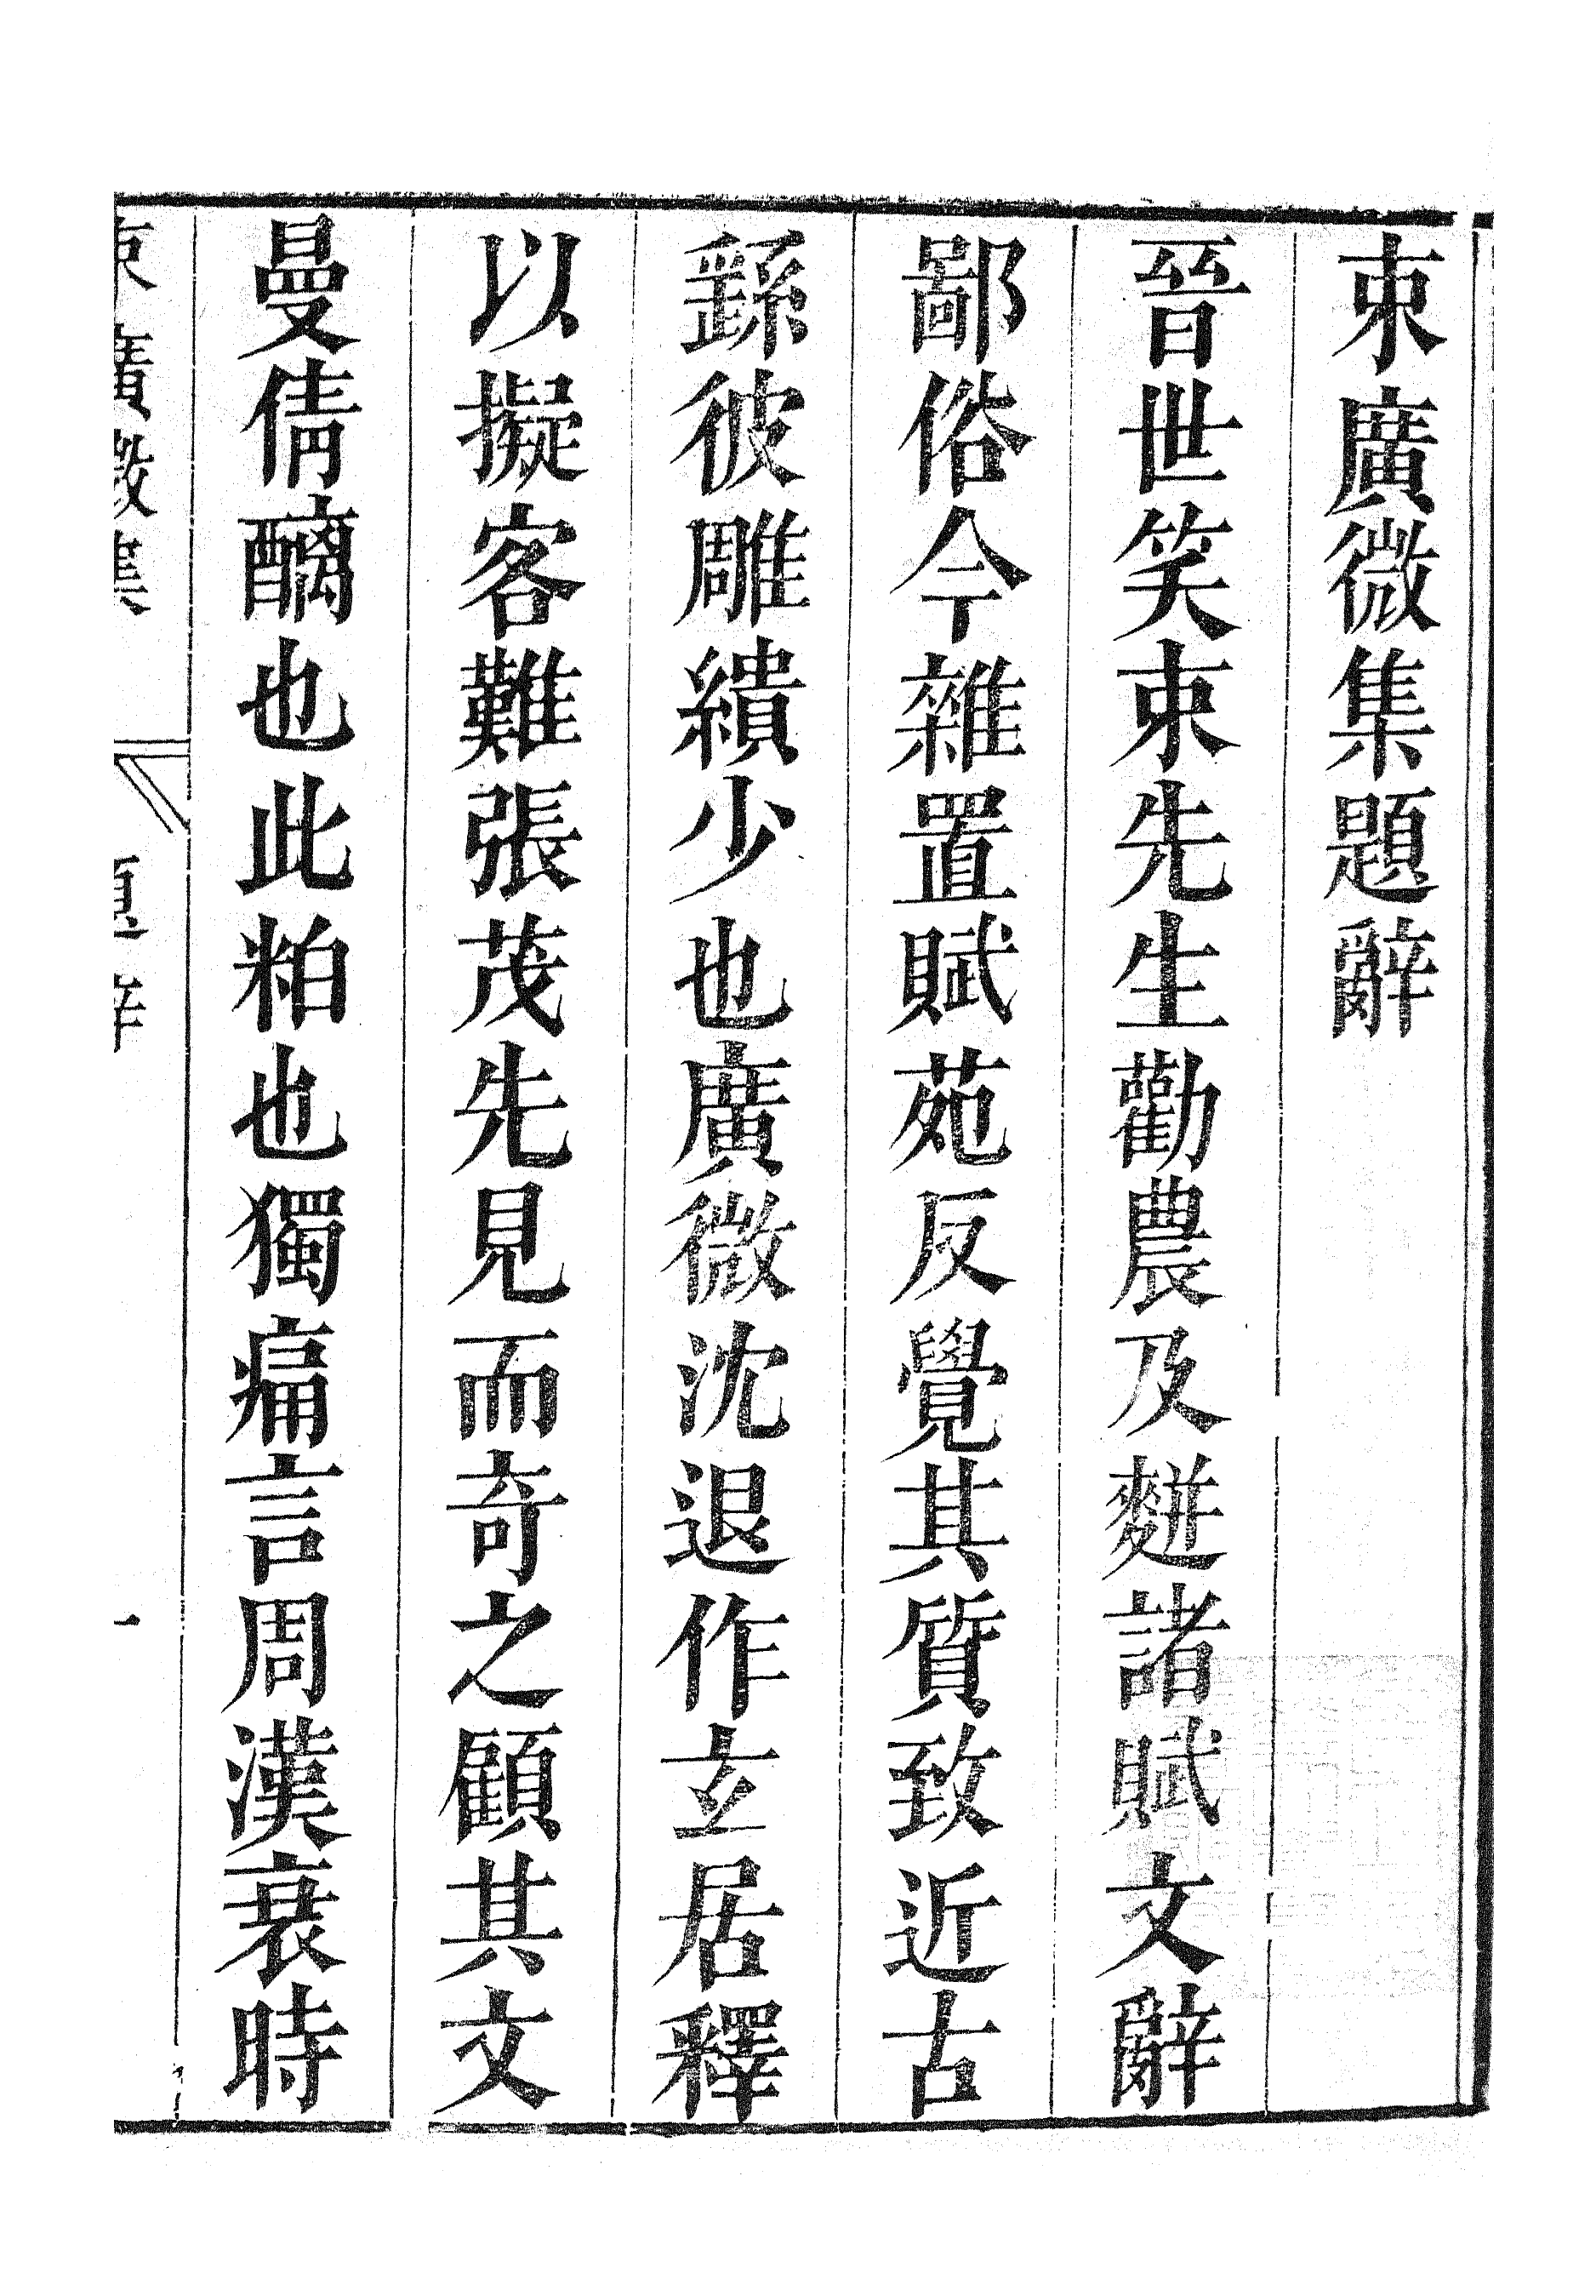 束廣微集題辭
晉世笑束先生勸農及麰諸賦文辭
鄙俗今雜置賦苑反覺其質致近古
繇彼雕繢少也廣微沈退作玄居釋
以擬客難張茂先見而奇之顧其文
曼倩醨也此粕也獨痛言周漢衰時
束廣微集 題辭 一